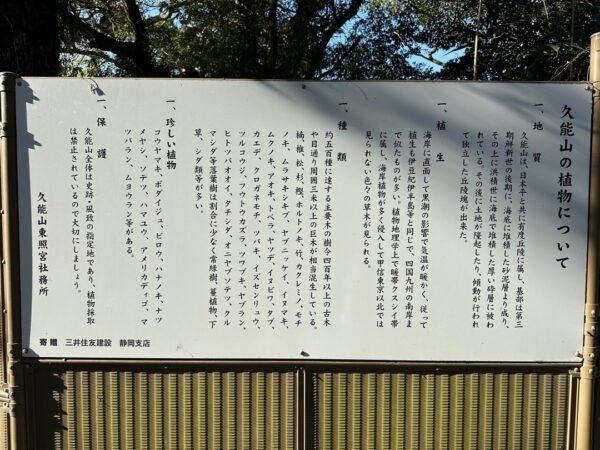 久能山の植物について
一、地質
久能山は、日本平と共に有度丘陵に属し、基部は第三
期鮮新世の後期に、海底に堆積した砂泥層より成り、
その上に洪積世に海底で堆積した厚い砕層に被わ
れている。その後に土地が隆起したり、傾動が行われ
て独立した丘陵塊が出来た。
一、植生
海岸に直面して黒潮の影響で気温が暖かく、従って
植生も伊豆紀伊半島等と同じで、四国九州の南岸ま
で似たものが多い。植物地理学上で暖帯クスシイ帯
に属し、海岸植物が多く侵入して甲信東京以北では
見られない色々の草木が見られる。
一、種類
約五百種に達する主要木の樹令四百年以上の古木
や目通り周囲三米以上の巨木が相当混生している。
楠、椎、松、杉、樫、ホルトノキ、竹、カクレミノ、モチ
ノキ、ムラサキシキブ、ヤブニッケイ、イヌマキ、
ムクノキ、アオキ、トベラ、ヤツデ、イヌビワ、タブ、
カエデ、クロガネモチ、ツバキ、イズセンリュウ、
ツルコウジ、フウトウカズラ、ツワブキ、ヤブラン、
ヒトツバオオイ、タチシダ、オニヤブソテツ、クル
マシダ等落葉樹は割合に少なく常緑樹、蔓植物、下
草、シダ類等が多い。
一、珍しい植物
コウヤマキ、ボダイジュ、ビロウ、ハナノキ、ナツ
メヤシ、ソテツ、ハマユウ、アメリカデイゴ、マ
ツバラン、ムヨウラン等がある。
一、保護
久能山全体は史跡・風致の指定地であり、植物採取
は禁止されているので大切にしましょう。
久能山東照宮社務所
寄贈 三井住友建設 静岡支店